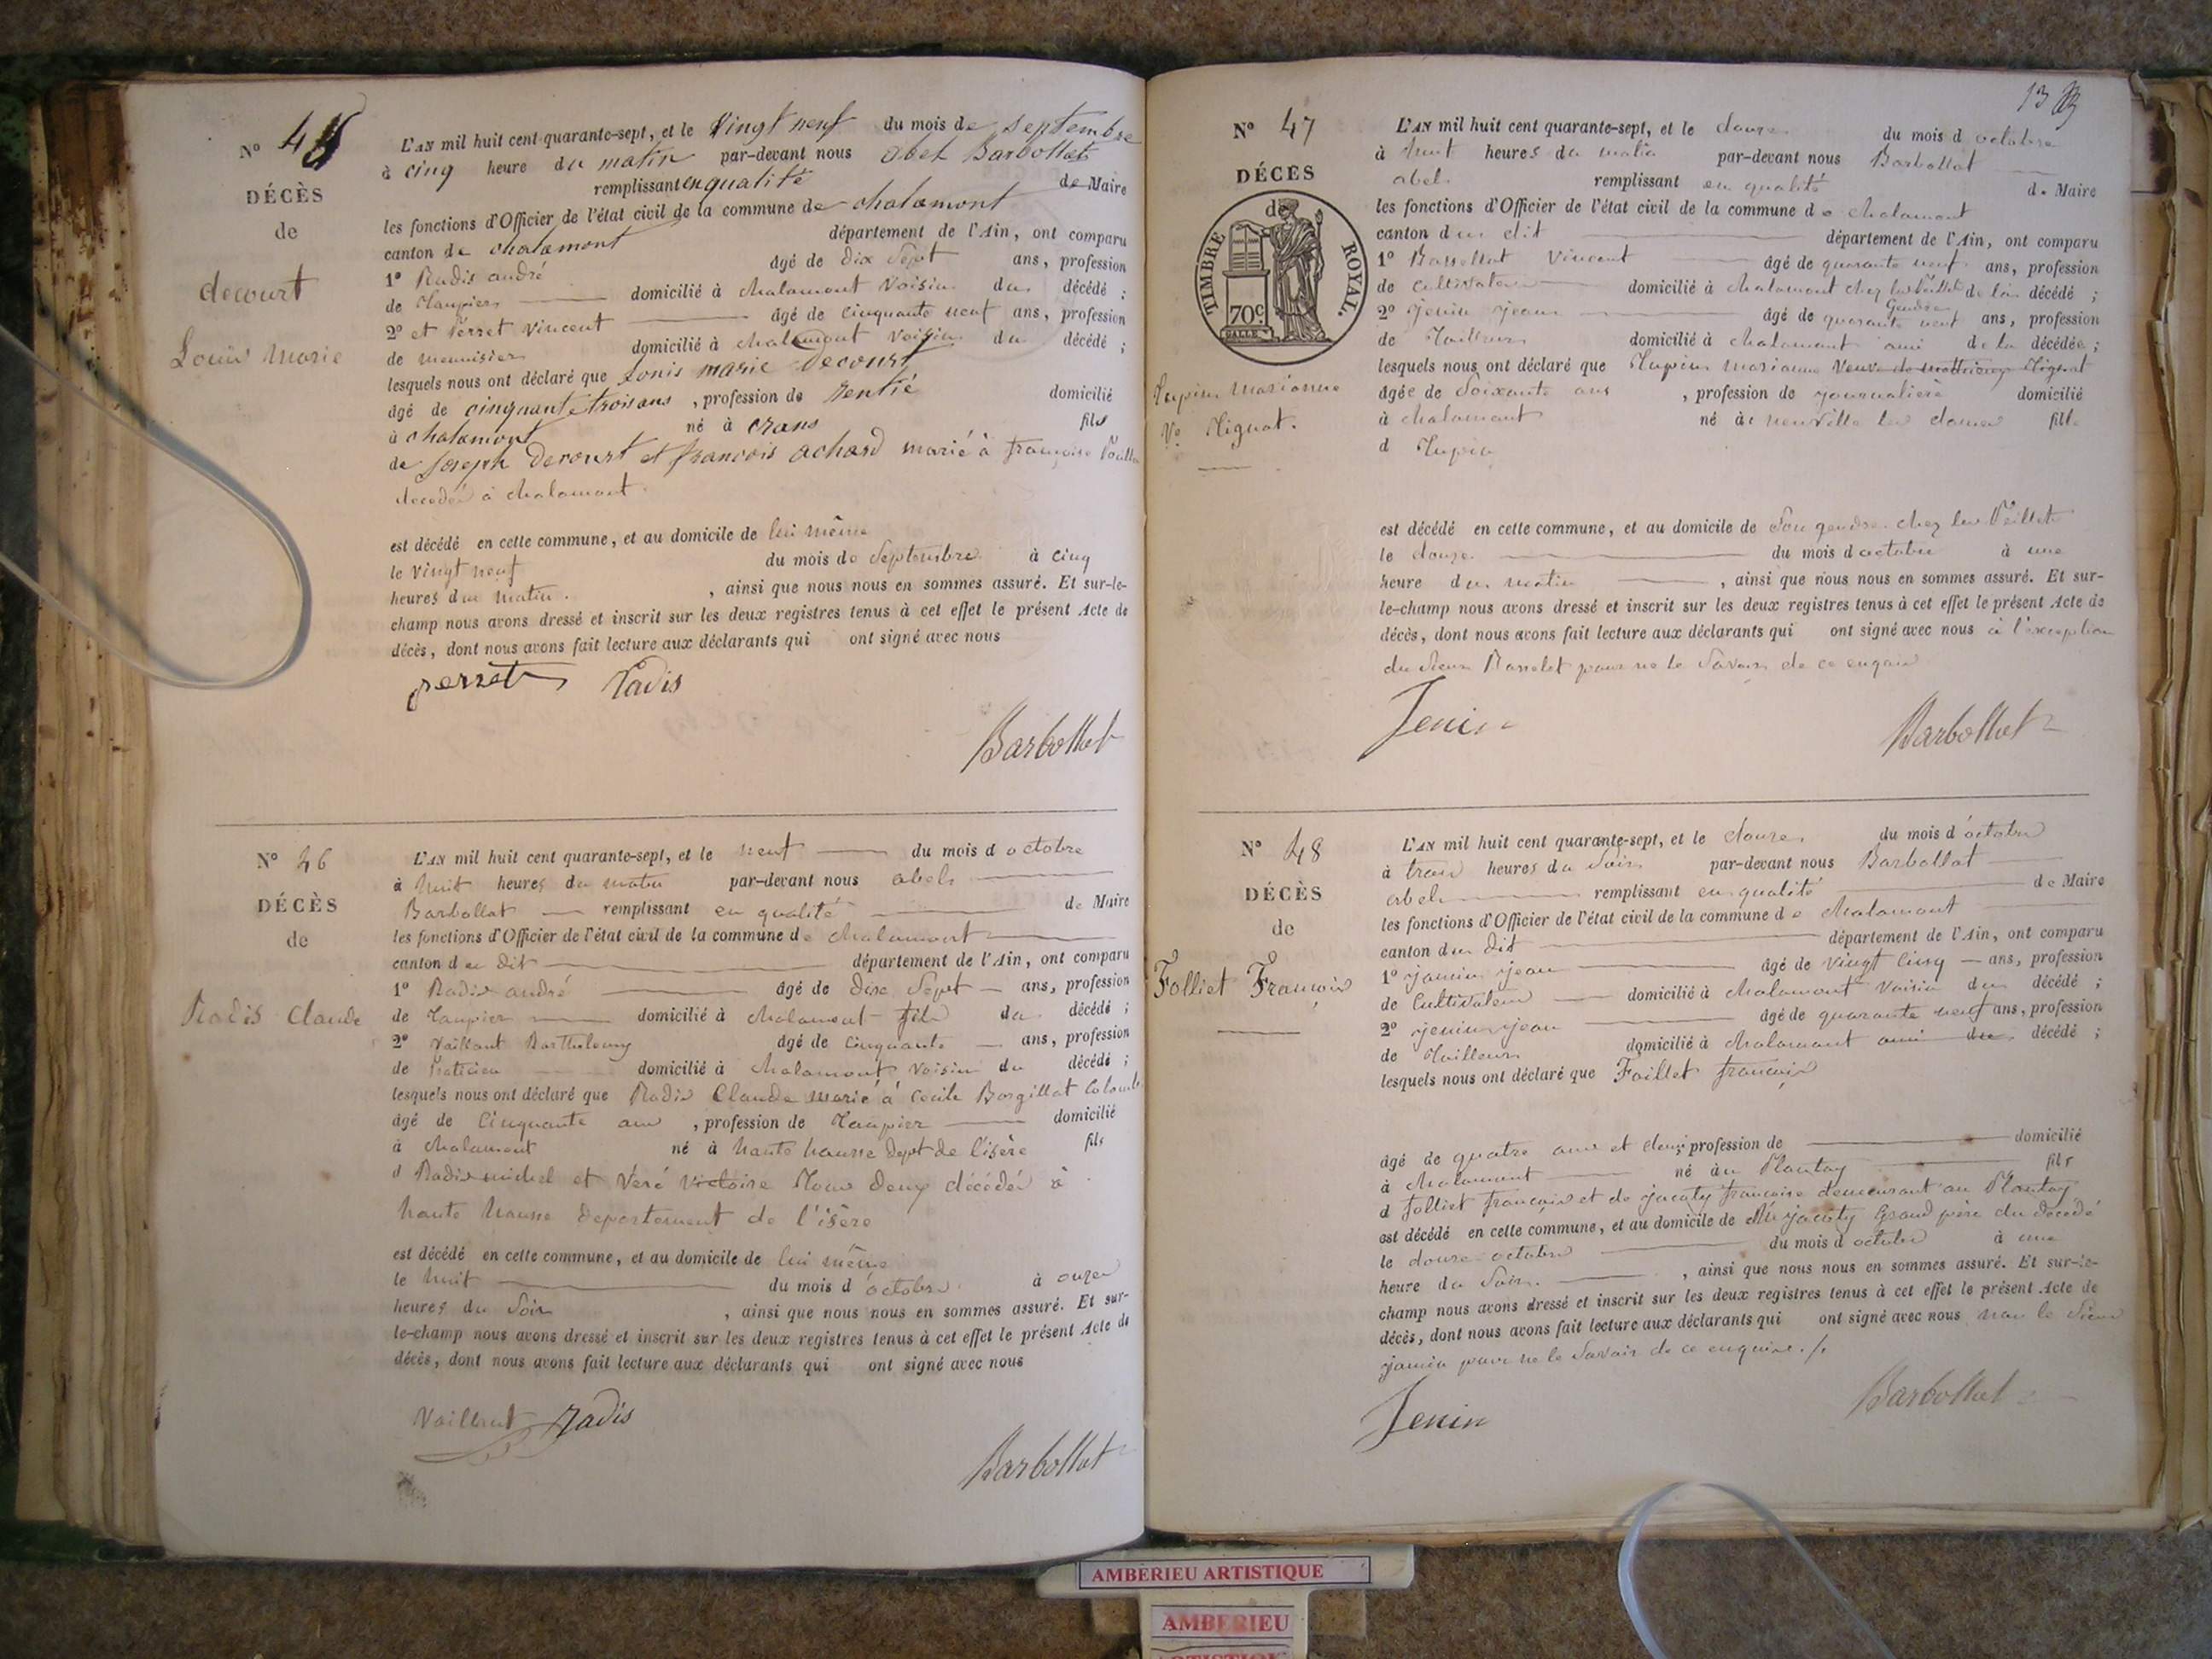 N° 45
DÉCÈS
de
decourt
Louis Marie
L'AN mil huit cent quarante-sept, et le Vingt neuf du mois de Septembre
à cinq heure du matin par-devant nous abel Barbollat
remplissant en qualité de Maire
les fonctions d'Officier de l'état civil de la commune de chalamont
canton de chalamont département de l'Ain, ont comparu
1° Radis andré âgé de dix Sept ans, profession
de domicilié à chalamont Voisin du décédé ;
2° et Perret Vincent âgé de cinquante neuf ans, profession
de menuisier domicilié à chalamont Voisin du décédé ;
lesquels nous ont déclaré que Louis marie Decourt
âgé de cinquante trois ans , profession de Rentié domicilié
à chalamont né à crans fils
de Joseph Decourt et francois achard marié à francoise
décédé à chalamont
est décédé en cette commune, et au domicile de lui même
le vingt neuf du mois de Septembre à cinq
heures du matin. , ainsi que nous nous en sommes assuré. Et sur-le-
champ nous avons dressé et inscrit sur les deux registres tenus à cet effet le présent Acte de
décès, dont nous avons fait lecture aux déclarants qui ont signé avec nous
perret Radis
Barbollat
N° 46
DÉCÈS
de
Radis Claude
L'AN mil huit cent quarante-sept, et le neuf du mois d octobre
à huit heures du matin par-devant nous abel
Barbollat remplissant en qualité de Maire
les fonctions d'Officier de l'état civil de la commune de chalamont
canton du dit département de l'Ain, ont comparu
1° Radis andré âgé de dix Sept ans, profession
de domicilié à chalamont fils du décédé ;
2° Vaillant Barthelemy âgé de cinquante ans, profession
de domicilié à chalamont Voisin du décédé ;
lesquels nous ont déclaré que Radis Claude marié à cecile Borgillat
âgé de Cinquante ans , profession de domicilié
à chalamont né à dept de l'isère fils
d Radis michel et Veré Victoire Tous deux décédés à
departement de l'isère
est décédé en cette commune, et au domicile de lui même
le huit du mois d octobre à onze
heures du Soir , ainsi que nous nous en sommes assuré. Et sur-
le-champ nous avons dressé et inscrit sur les deux registres tenus à cet effet le présent Acte de
décès, dont nous avons fait lecture aux déclarants qui ont signé avec nous
Vaillant Radis
Barbollat
13
N° 47
DÉCÈS
de
TIMBRE ROYAL.
70c
Marianne
Ve Mignat.
L'AN mil huit cent quarante-sept, et le douze du mois d octobre
à huit heures du matin par-devant nous Barbollat
abel remplissant en qualité de Maire
les fonctions d'Officier de l'état civil de la commune de chalamont
canton du dit département de l'Ain, ont comparu
1° Vincent âgé de quarante neuf ans, profession
de cultivateur domicilié à chalamont chez les de la décédé ;
2° jenin jean âgé de quarante neuf ans, profession
de Tailleur domicilié à chalamont ami de la décédée ;
lesquels nous ont déclaré que marianne Veuve
âgée de Soixante ans , profession de journalière domicilié
à chalamont né à neuville les dames fille
d
est décédé en cette commune, et au domicile de Son gendre chez les
le douze du mois d octobre à une
heure du matin , ainsi que nous nous en sommes assuré. Et sur-
le-champ nous avons dressé et inscrit sur les deux registres tenus à cet effet le présent Acte de
décès, dont nous avons fait lecture aux déclarants qui ont signé avec nous à l'exception
du Sieur pour ne le Savoir de ce enquis
Jenin
Barbollat
N° 48
DÉCÈS
de
Folliet François
L'AN mil huit cent quarante-sept, et le douze du mois d octobre
à trois heures du Soir par-devant nous Barbollat
abel remplissant en qualité de Maire
les fonctions d'Officier de l'état civil de la commune de chalamont
canton du dit département de l'Ain, ont comparu
1° jamin jean âgé de vingt cinq ans, profession
de Cultivateur domicilié à chalamont Voisin du décédé ;
2° jenin jean âgé de quarante neuf ans, profession
de Tailleur domicilié à chalamont ami du décédé ;
lesquels nous ont déclaré que Folliet françois
âgé de quatre ans et demi profession de domicilié
à chalamont né au Plantay fils
d folliet françois et de jacoty francoise demeurant au Plantay
est décédé en cette commune, et au domicile de jacoty Grand père du décédé
le douze octobre du mois d octobre à une
heure du Soir. , ainsi que nous nous en sommes assuré. Et sur-le-
champ nous avons dressé et inscrit sur les deux registres tenus à cet effet le présent Acte de
décès, dont nous avons fait lecture aux déclarants qui ont signé avec nous non le Sieur
jamin pour ne le Savoir de ce enquis ./.
Jenin
Barbollat
AMBERIEU ARTISTIQUE
AMBERIEU
ARTISTIQUE